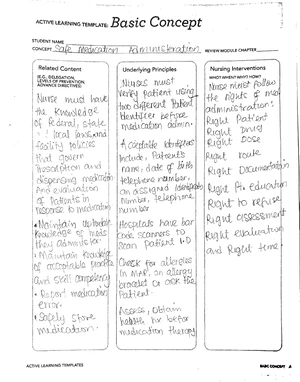 ACTIVE LEARNING TEMPLATE: Basic Concept
STUDENT NAME
CONCEPT Safe Medication Administration
REVIEW MODULE CHAPTER
Related Content
(E.G., DELEGATION,
LEVELS OF PREVENTION,
ADVANCE DIRECTIVES)
Nurse must have
the knowledge
of federal, state
local laws, and
facility policies
that govern
dispensing medication
and evaluation
of patients in
response to medication
• Maintain
knowledge of meds
they administer.
• Maintain knowledge
of acceptable practice
and skill competency
• Report medication
error.
• Safely store
medication.
Underlying Principles
Nurses must
verify patient using
two different Patient
Identifier before
medication admin.
Acceptable Identifiers
Include, Patient's
name, date of birth
telephone number,
an assigned
number, telephone
number
Hospitals have bar
code scanners to
scan patient I.D
Check for allergies
in MAR, an allergy
bracelet or ask the
Patient
Assess, Obtain
health hx before
medication therapy
Nursing Interventions
WHO? WHEN? WHY? HOW?
Nurse must follow
the rights of med
administration:
Right Patient
Right Drug
Right Dose
Right route
Right Documentation
Right Pt. education
Right to refuse
Right assessment
Right evaluation
and Right time.
ACTIVE LEARNING TEMPLATES
BASIC CONCEPT A